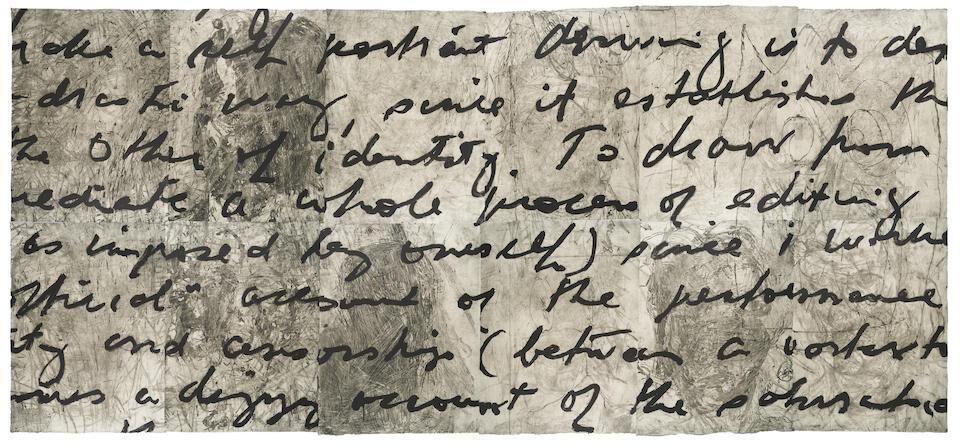 make a self portrait drawing is to
way, since it establishes the
the Other of identity. To draw from
mediate a whole process of editing
as imposed by oneself) since i
official" account of the performance
ity and censorship (between a
a account of the